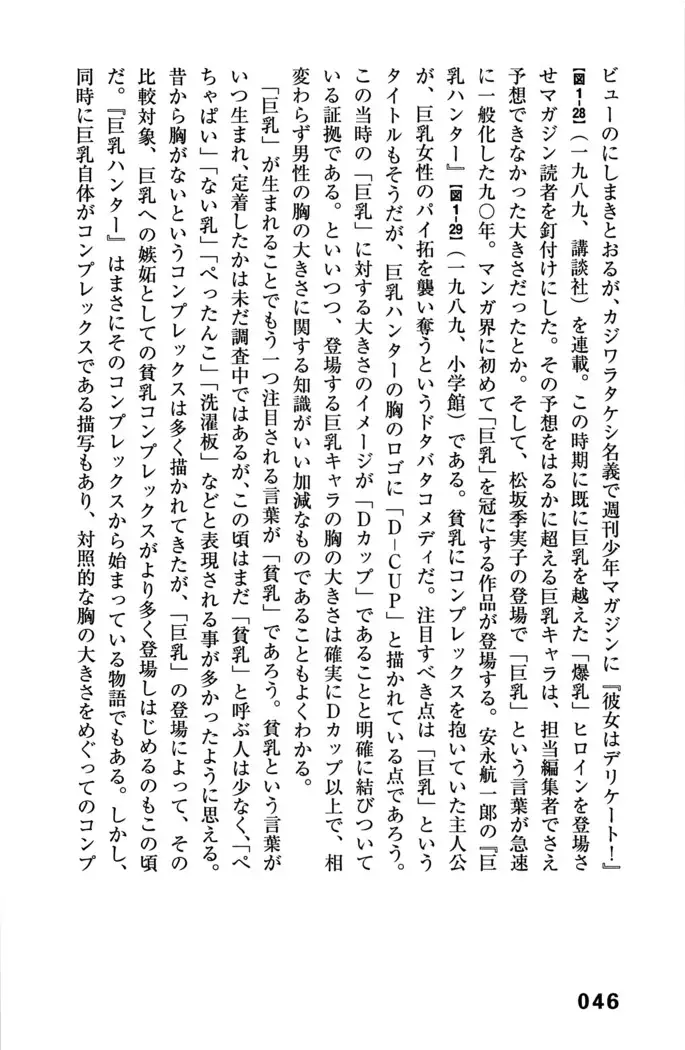 ビューのにしまきとおるが、カジワラタケシ名義で週刊少年マガジンに『彼女はデリケート！』
【図1-28】（一九八九、講談社）を連載。この時期に既に巨乳を越えた「爆乳」ヒロインを登場さ
せマガジン読者を釘付けにした。その予想をはるかに超える巨乳キャラは、担当編集者でさえ
予想できなかった大きさだったとか。そして、松坂季実子の登場で「巨乳」という言葉が急速
に一般化した九〇年。マンガ界に初めて「巨乳」を冠にする作品が登場する。安永航一郎の『巨
乳ハンター』【図1-29】（一九八九、小学館）である。貧乳にコンプレックスを抱いていた主人公
が、巨乳女性のパイ拓を襲い奪うというドタバタコメディだ。注目すべき点は「巨乳」という
タイトルもそうだが、巨乳ハンターの胸のロゴに「D-CUP」と描かれている点であろう。
この当時の「巨乳」に対する大きさのイメージが「Dカップ」であることと明確に結びついて
いる証拠である。といいつつ、登場する巨乳キャラの胸の大きさは確実にDカップ以上で、相
変わらず男性の胸の大きさに関する知識がいい加減なものであることもよくわかる。
「巨乳」が生まれることでもう一つ注目される言葉が「貧乳」であろう。貧乳という言葉が
いつ生まれ、定着したかは未だ調査中ではあるが、この頃はまだ「貧乳」と呼ぶ人は少なく、「ぺ
ちゃぱい」「ない乳」「ぺったんこ」「洗濯板」などと表現される事が多かったように思える。
昔から胸がないというコンプレックスは多く描かれてきたが、「巨乳」の登場によって、その
比較対象、巨乳への嫉妬としての貧乳コンプレックスがより多く登場しはじめるのもこの頃
だ。『巨乳ハンター』はまさにそのコンプレックスから始まっている物語でもある。しかし、
同時に巨乳自体がコンプレックスである描写もあり、対照的な胸の大きさをめぐってのコンプ
046